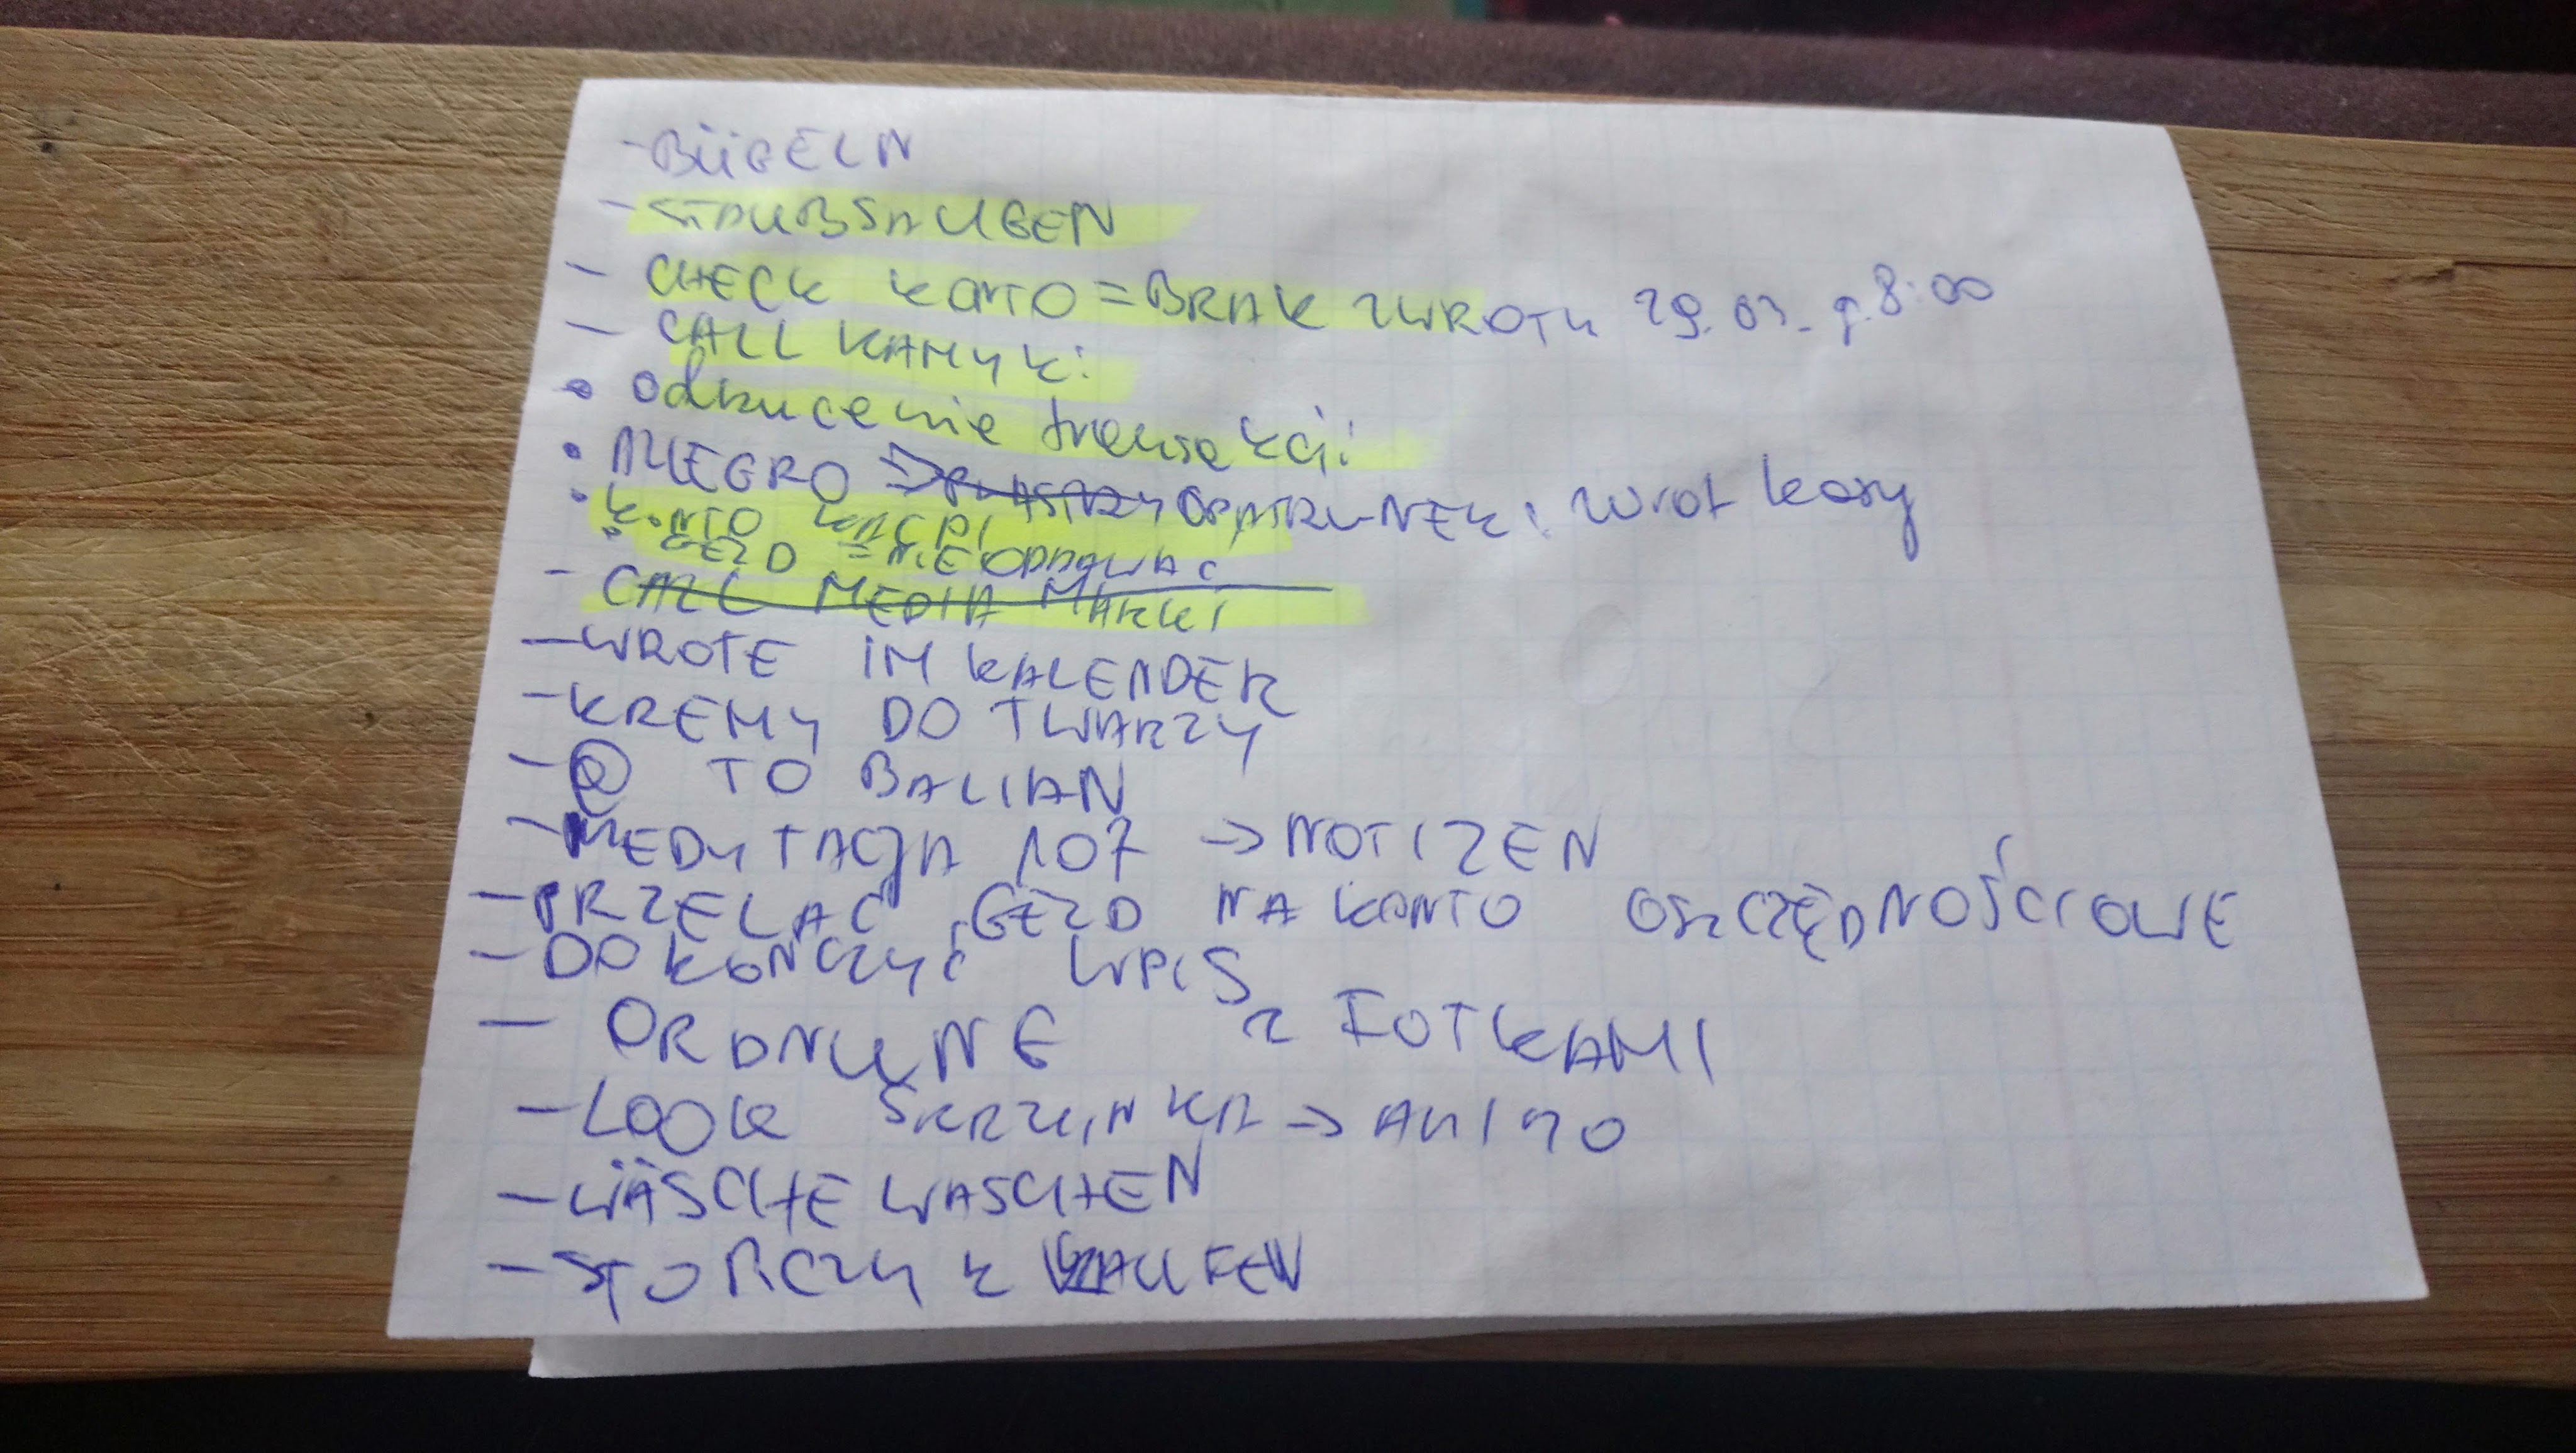 - BÜGELN
- STAUBSAUGEN
- CHECK KONTO = BRAK ZWROTU 29.03. g. 8:00
- CALL KAMYK:
• odrzucenie transakcji
• ALLEGRO => PLASTRY OPATRUNEK: zwrot kasy
• KONTO KACPI
• GEZD = NIE ODDAWAĆ
- CALL MEDIA MARKT
- WROTE IM KALENDER
- KREMY DO TWARZY
- @ TO BALIAN
- MEDYTACJA 107 -> NOTIZEN
- PRZELAĆ GEZD NA KONTO OSZCZĘDNOŚCIOWE
- DOKOŃCZYĆ WPIS
Z FOTKAMI
- ORDNUNG
- LOOK SKRZYNKA ->
- WÄSCHE WASCHEN
- STORCZYK KAUFEN